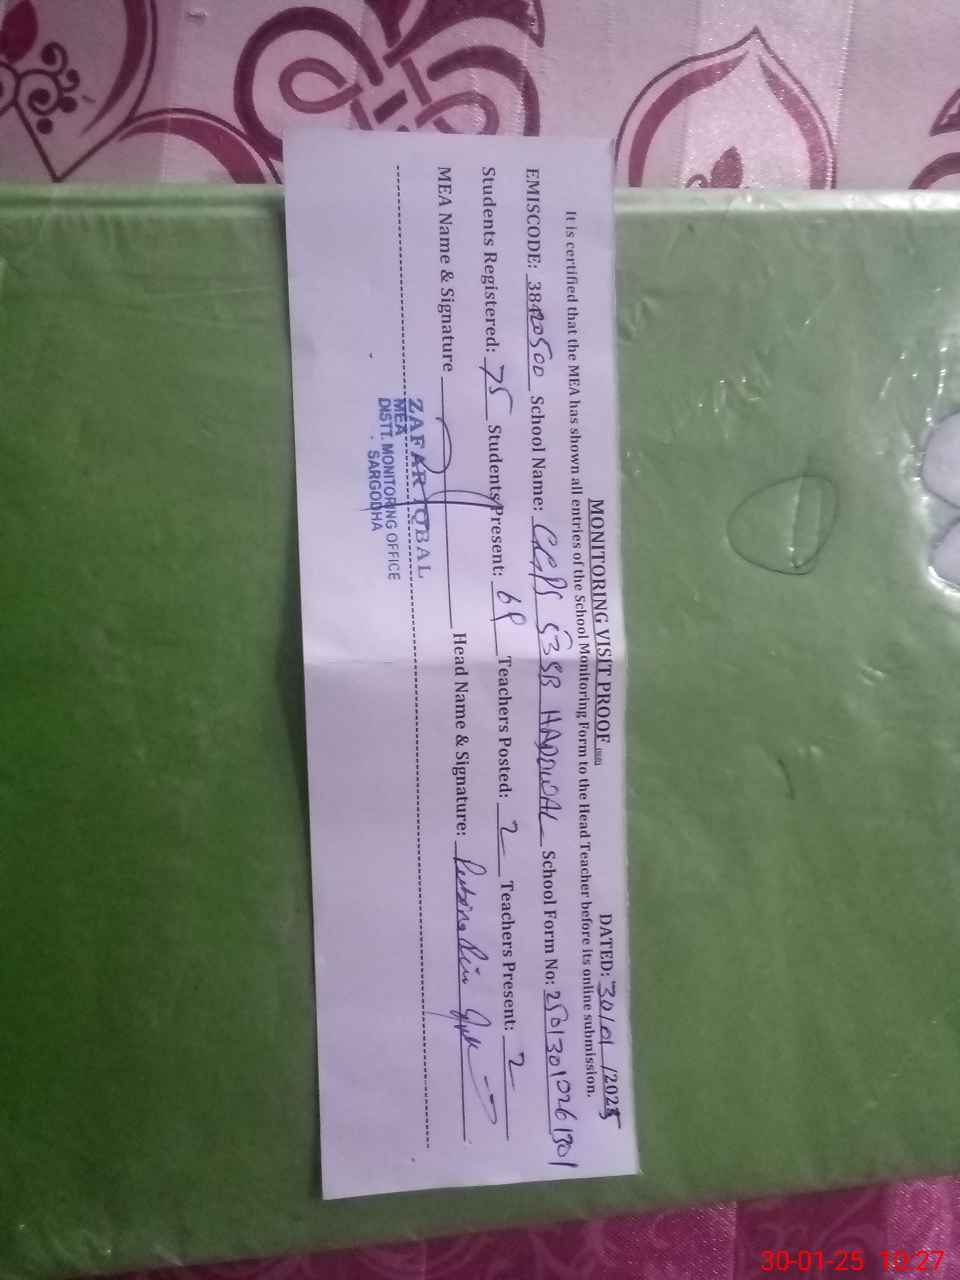 MONITORING VISIT PROOF DATED: 30/01/2025
It is certified that the MEA has shown all entries of the School Monitoring Form to the Head Teacher before its online submission.
EMISCODE: 38420500 School Name: GGPS 53 SB HADDWAL School Form No: 25013010261301
Students Registered: 75 Students Present: 69 Teachers Posted: 2 Teachers Present: 2
MEA Name & Signature Head Name & Signature:
ZAFAR IQBAL
MEA
DISTT. MONITORING OFFICE
SARGODHA
30-01-25 10:27